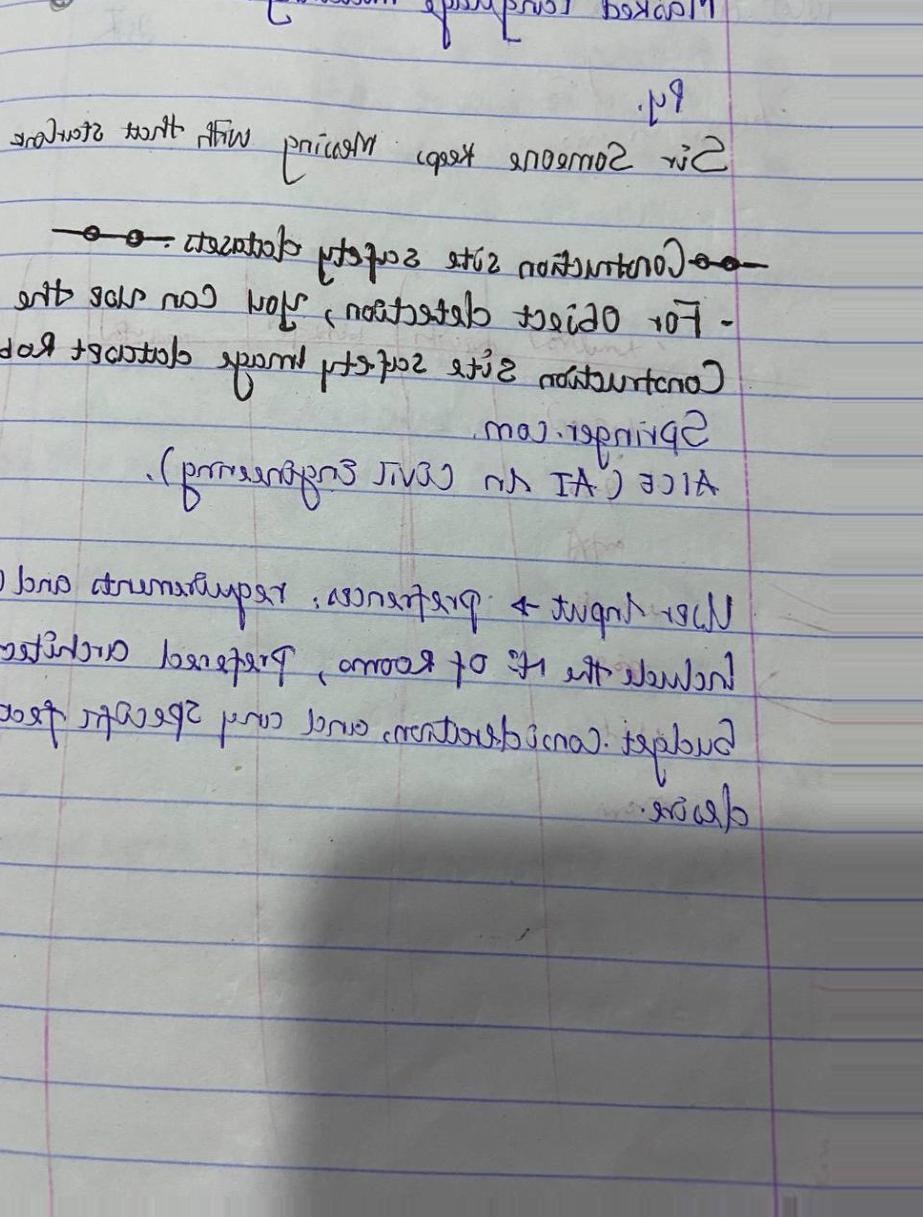 Masked language
Pq.
Sir Someone keeps Messing with that
Construction Site Safety datasets:
- For Object detection, you can use the
Construction Site Safety Image dataset Rob
Springer.com
AICE (AI in Civil Engineering).
User Input → preferences, requirements and
Include the #: of rooms, prefered architec
Budget considerations, and any specific feat
desire.